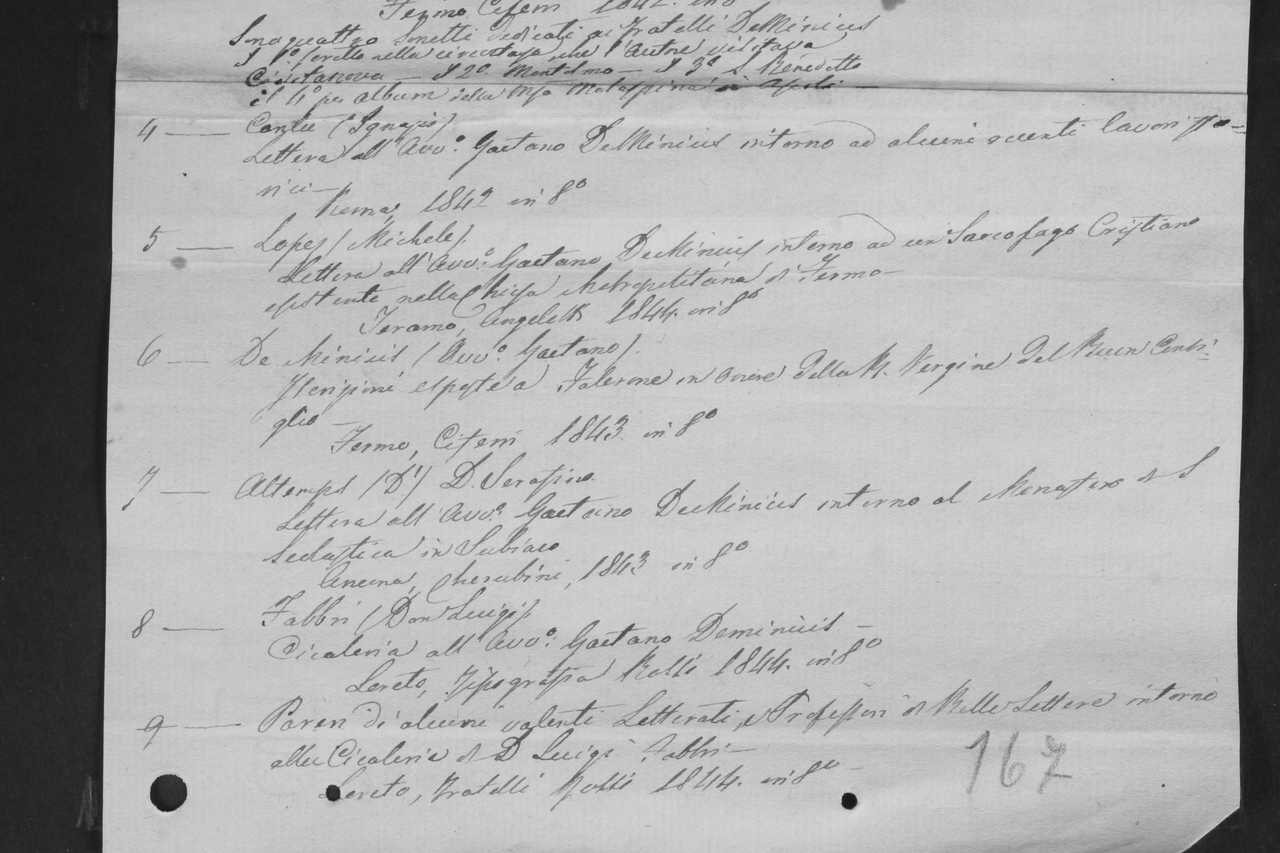 Fermo Ciferri 1842. in 8
Sono quattro Sonetti dedicati ai Fratelli DeMinicis
Il 1º scritto nella circostanza che l'Autore visitava
Civitanova — Il 2º Montolmo — Il 3º S. Benedetto
il 4º per album della Msa Malaspina in Ascoli —
4 — Cantu (Ignazio)
Lettera all'Avvº. Gaetano DeMinicis intorno ad alcuni recenti lavori sto=
rici —
Roma, 1842 in 8º
5 — Lopez (Michele)
Lettera all'Avvº. Gaetano DeMinicis intorno ad un Sarcofago Cristiano
esistente nella Chiesa Metropolitana di Fermo —
Teramo, Angeletti 1844. in 8º
6 — De Minicis (Avvº. Gaetano)
Iscrizioni esposte a Falerone in onore della M. Vergine del Buon Consi=
glio
Fermo, Ciferri 1843. in 8º
7 — Altemps (D') D. Serafino.
Lettera all'Avvº. Gaetano DeMinicis intorno al Monastero di S
Scolastica in Subiaco
Ancona, Cherubini, 1843 in 8º
8 — Fabbri (Don Luigi)
Cicaleria all'Avvº. Gaetano Deminicis —
Loreto, Tipografia Rossi 1844. in 8º
9 — Pareri di alcuni valenti Letterati, e Professori di Belle Lettere intorno
alla Cicaleria di D Luigi Fabbri —
Loreto, Fratelli Rossi 1844. in 8º —
167